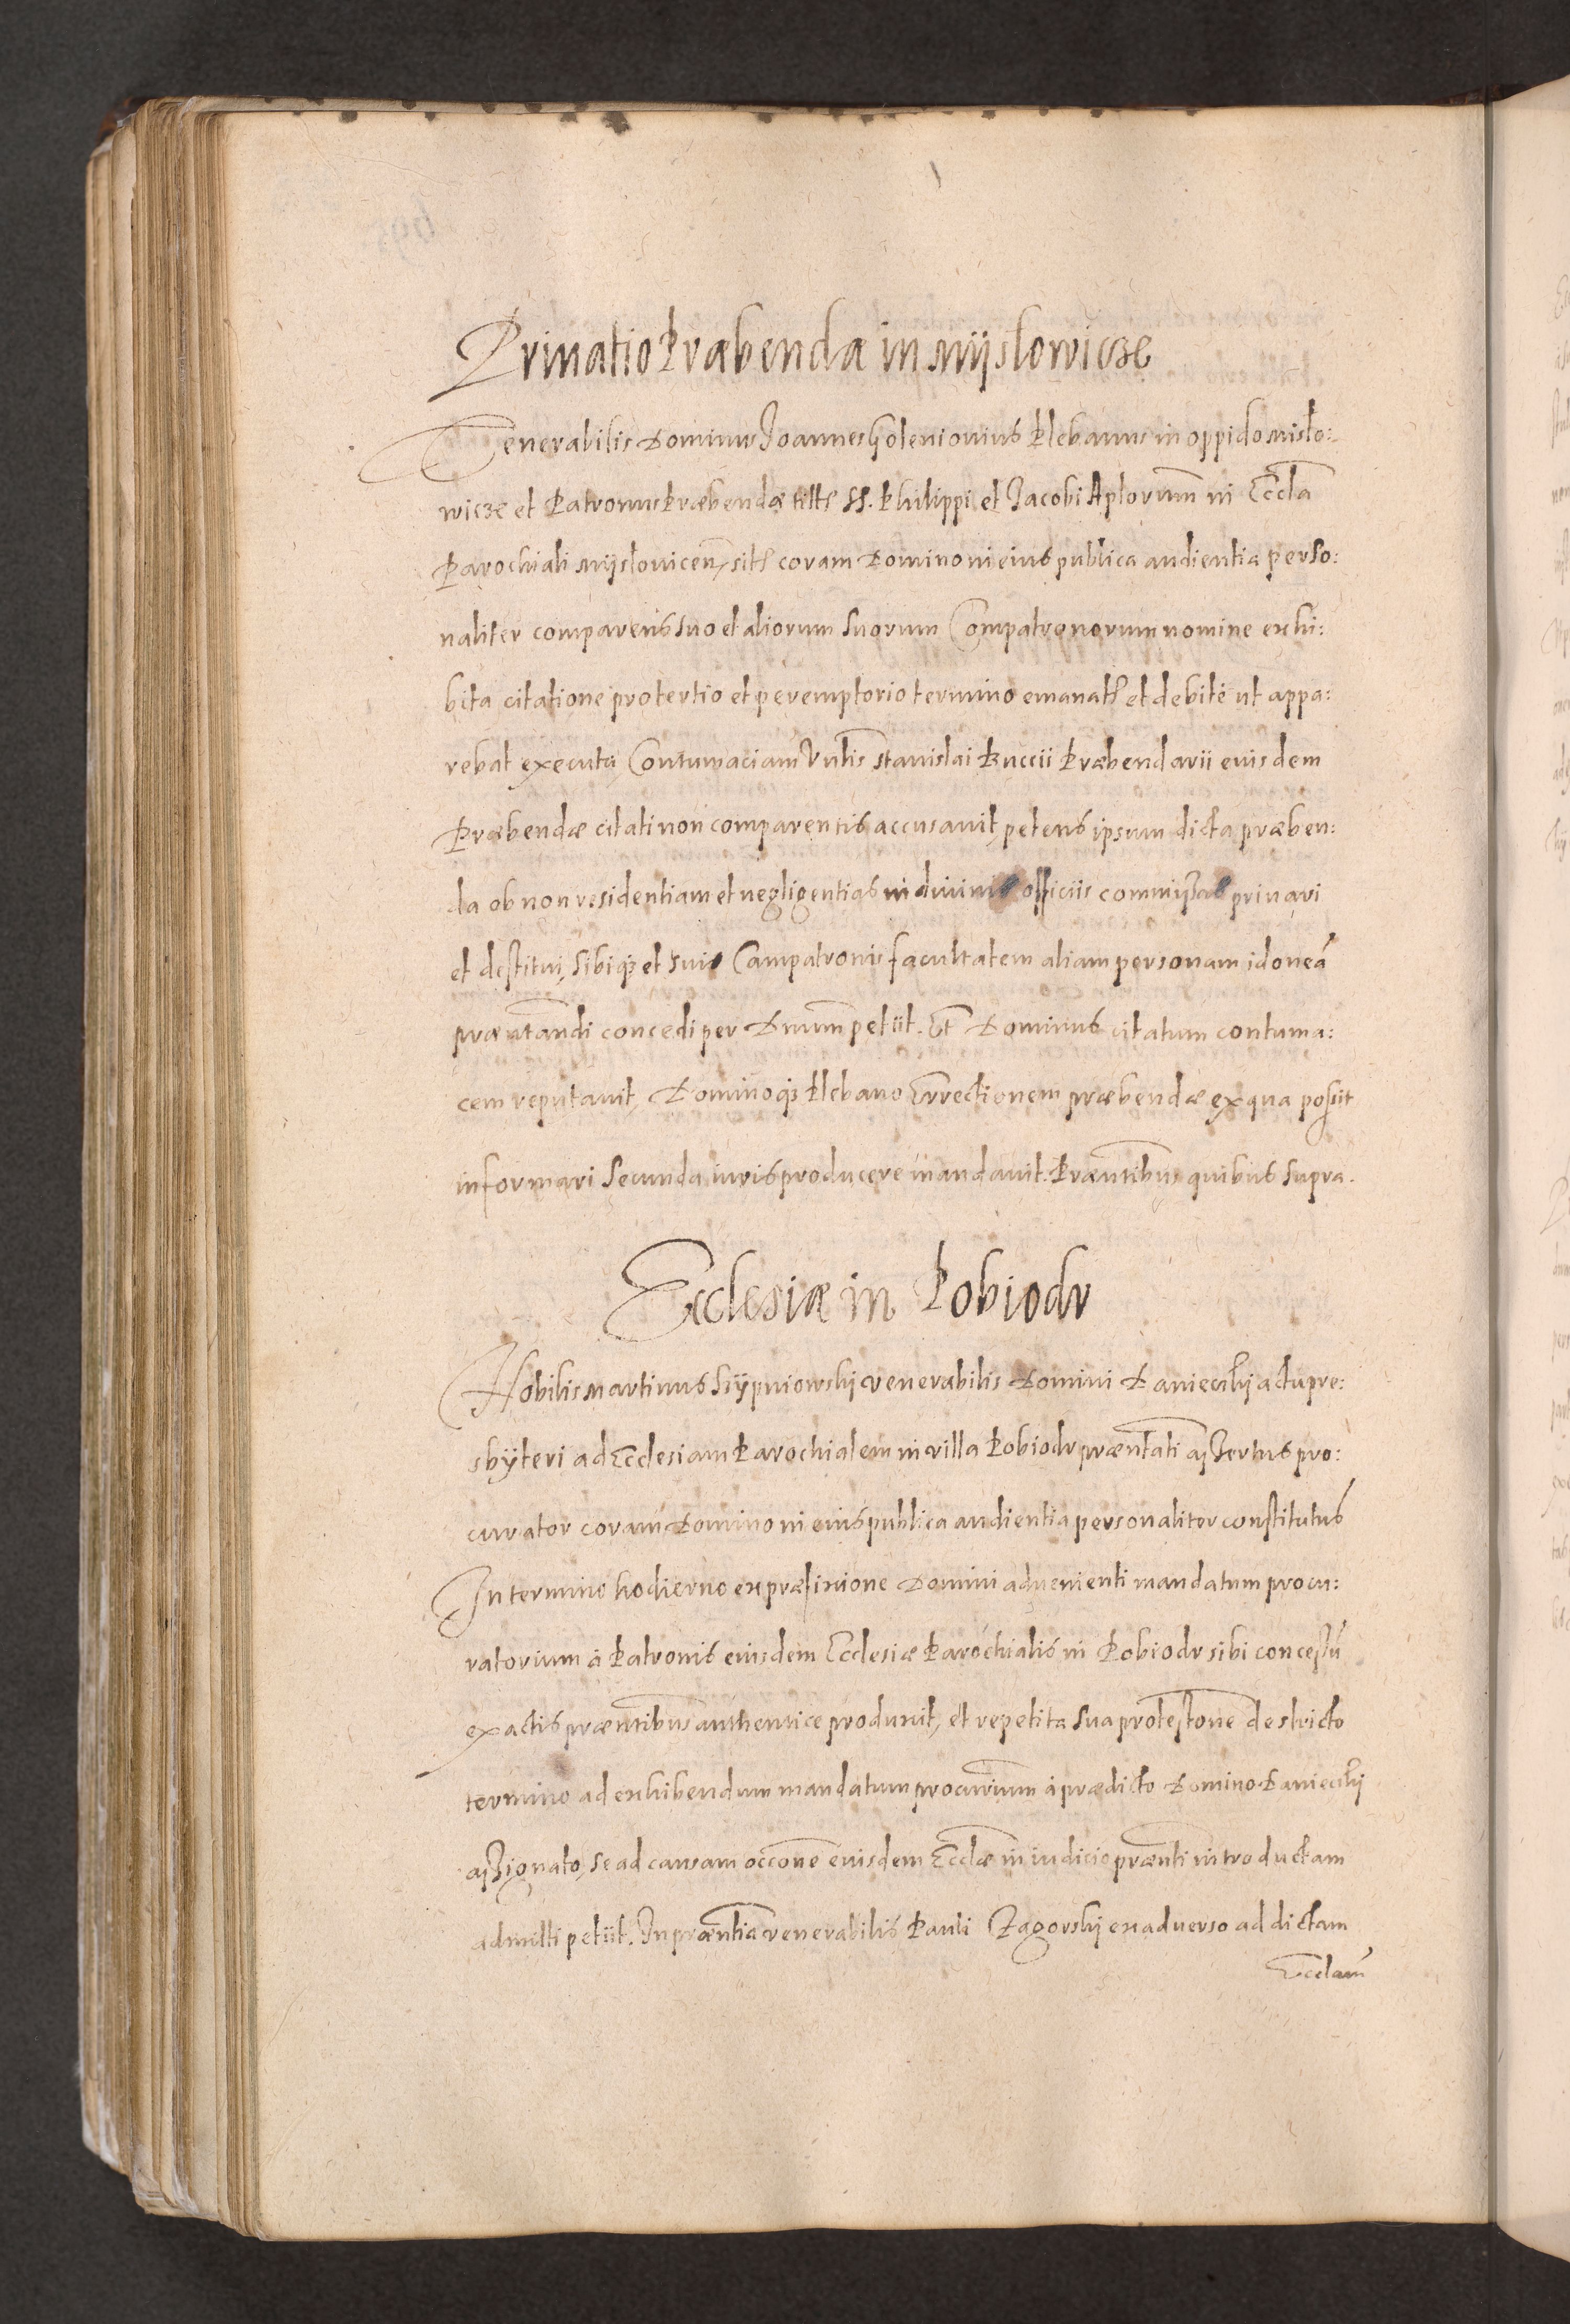 Priuatio Præbendæ in Mÿslowicze
Venerabilis Dominus Joannes Goleniouius Plebanus in oppido Mislo:
wicze et Patronus Præbendæ titlī SS. Philippi et Jacobi Aplorum̄ in Eccla
Parochiali Mÿslouicen̄, sitæ coram Domino in eius publica audientia perso:
naliter comparens suo et aliorum suorum Compatronorum nomine exhi:
bita citatione pro tertio et peremptorio termino emanata et debite ut appa:
rebat executa, Contumaciam Vnlis Stanislai Kuccii Præbendarii eiusdem
Præbendæ citati non comparentis accusauit, petens ipsum dicta præben:
da ob non residentiam et negligentias in diuinis officiis commissas priuari
et destitui, sibiq; et suis Campatronis facultatem aliam personam idoneā
præntandi concedi per Dnum petiit. Et Dominus citatum contuma:
cem reputauit, Dominoq; Plebano Errectionem præbendæ ex qua possit
informari secunda iuris producere mandauit. Præntibus quibus supra.
Ecclesiæ in Pobiodr
Nobilis Martinus Sczÿpniowskj venerabilis Domini Danieczkj actu pre:
sbÿteri ad Ecclesiam Parochialem in villa Pobiodr præntati assertus pro:
curator coram Domino in eius publica audientia personaliter constitutus
In termino hodierno ex præfixione Domini aduenienti mandatum procu:
ratorium à Patronis eiusdem Ecclesiæ Parochialis in Pobiodr sibi concessū
ex actis præntibus authentice produxit, et repetita sua protestone de stricto
termino ad exhibendum mandatum procurium à prædicto Domino Danieczkj
assignato, se ad causam occone eiusdem Ecclæ in iudicio prænti introductam
admitti petiit. In præntia venerabilis Pauli Zagorskj ex aduerso ad dictam
Ecclam